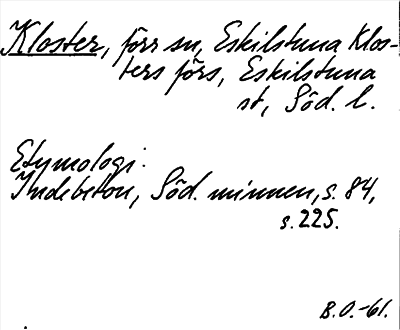 Kloster, förr sn, Eskilstuna Klos-
ters förs, Eskilstuna
st, Söd. l.
Etymologi:
Indebetou, Söd. minnen, s. 84,
s. 225.
B.O.-61.